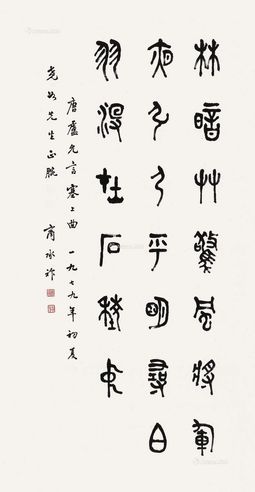 林暗艸驚風將軍
夜引弓平明尋白
羽沒在石棱中
唐盧允言塞上曲 一九七九年初夏
先生正腕 商承祚